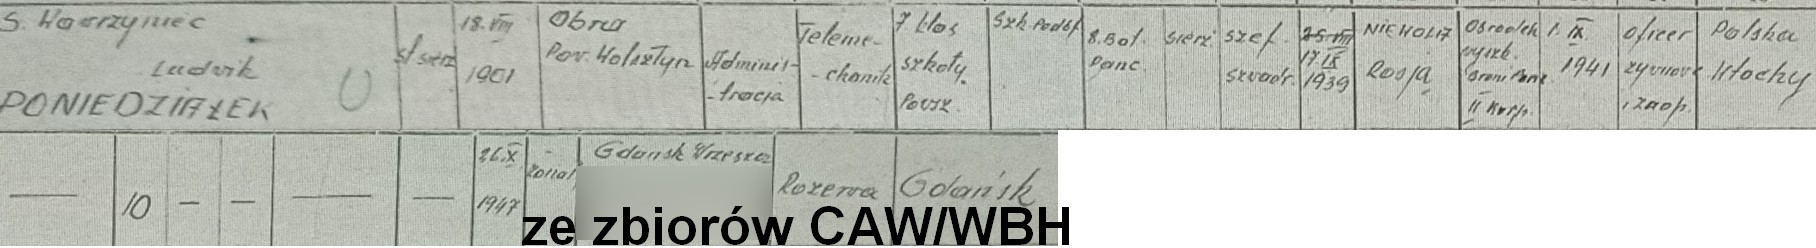 S. Wawrzyniec
Ludwik
PONIEDZIAŁEK
st sierż
18.VIII
1901
Obra
Pow. Wolsztyn
Adminis-
-tracja
Teleme-
-chanik
7 klas
szkoły
Powsz.
Szk. Podof
8. Bat.
Panc.
sierż
szef.
szwadr.
25 VIII
17 IX
1939
NIEWOLA
Rosja
Ośrodek
wyszk.
Broni Panc.
II Korp.
1. IX
1941
oficer
żywnow
i zaop.
Polska
Włochy
— 10 — — — —
26.X
1947
-
żonat
Gdańsk Wrzeszcz
Rezerwa
Gdańsk
ze zbiorów CAW/WBH